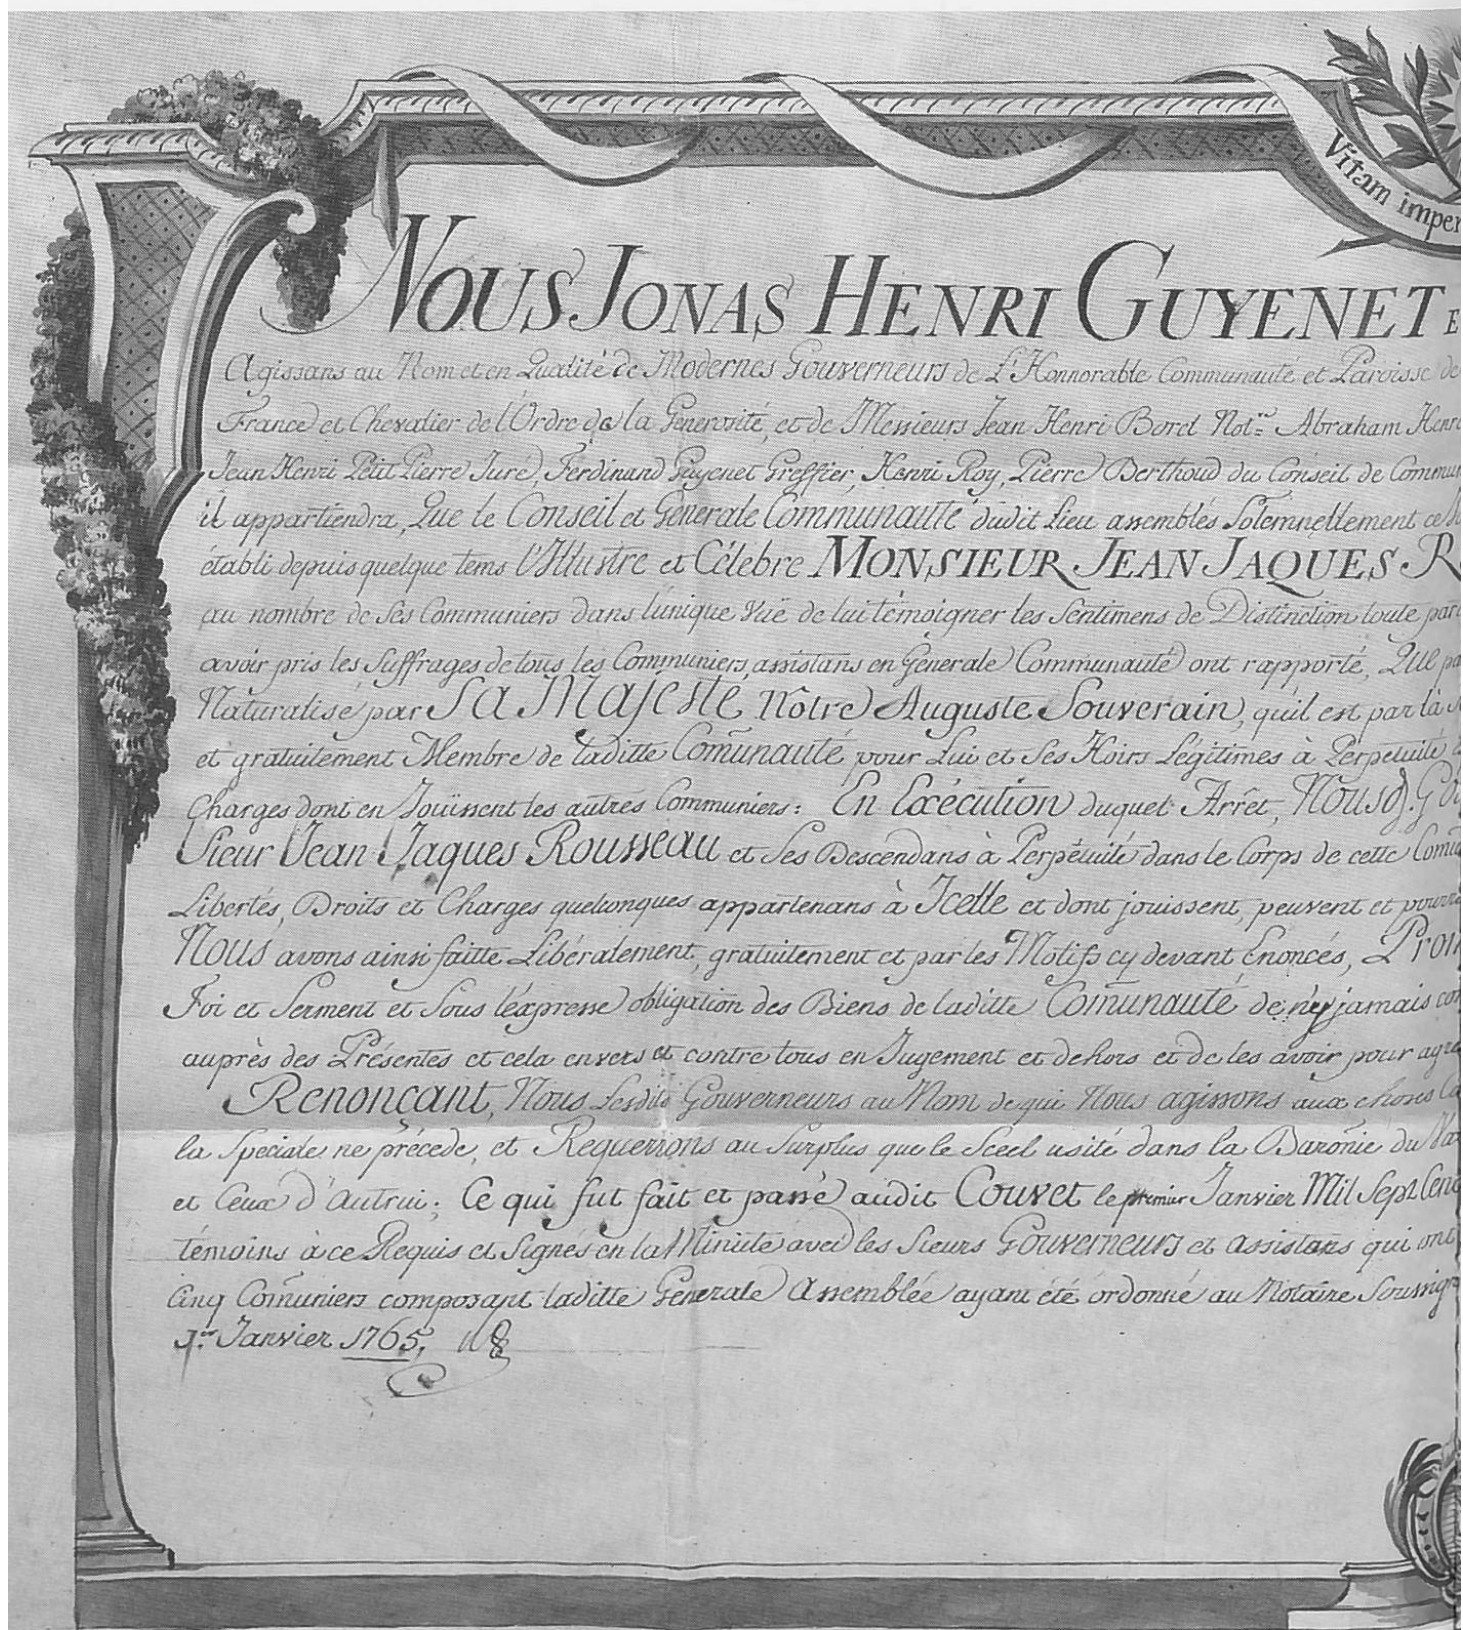 Vitam imper
NOUS JONAS HENRI GUYENET E
Agissans au Nom et en Qualité de Modernes Gouverneurs de L'Honnorable Communauté et Paroisse de
France et Chevalier de l'Ordre de la Générosité, et de Messieurs Jean Henri Borel Not.re Abraham Henri
Jean Henri Petit Pierre Juré, Ferdinand Guyenet Greffier, Henri Roy, Pierre Berthoud du Conseil de Commun
il appartiendra, Que le Conseil et Générale Communauté dudit Lieu assemblés Solemnellement ce
établi depuis quelque tems l'Illustre et Célèbre MONSIEUR JEAN JAQUES R
au nombre de ses Communiers dans l'unique Vuë de lui témoigner les Sentimens de Distinction toute par
avoir pris les Suffrages de tous les Communiers, assistans en Générale Communauté ont rapporté, Que pa
Naturalisé par Sa Majesté Nôtre Auguste Souverain, qu'il est par là
et gratuitement Membre de laditte Com̃unauté pour Lui et Ses Hoirs Légitimes à Perpetuité
Charges dont en Joüissent les autres Communiers: En Exécution duquel Arrêt, Nous d. G
Sieur Jean Jaques Rousseau et Ses Descendans à Perpétuité dans le Corps de cette Com̃u
Libertés, Droits et Charges quelconques appartenans à Icelle et dont jouissent, peuvent et pourro
Nous avons ainsi faitte Libéralement, gratuitement et par les Motifs cy devant Enoncés, Prom
Foi et Serment et Sous l'expresse obligation des Biens de laditte Com̃unauté de n'ey jamais con
auprès des Présentes et cela envers et contre tous en Jugement et dehors et de les avoir pour agré
Renonçant, Nous Lesdits Gouverneurs au Nom de qui Nous agissons aux choses
la Speciale ne précede, et Requerrons au Surplus que le Sceel usité dans la Baroñie du Va
et Ceux d'Autrui; Ce qui fut fait et passé audit Couvet le premier Janvier Mil Sept Cent
témoins à ce Requis et Signés en la Minüte avec les Sieurs Gouverneurs et assistans qui ont
Cinq Com̃uniers composant laditte Générale Assemblée ayant été ordonné au Notaire Soussigné
1.er Janvier 1765.